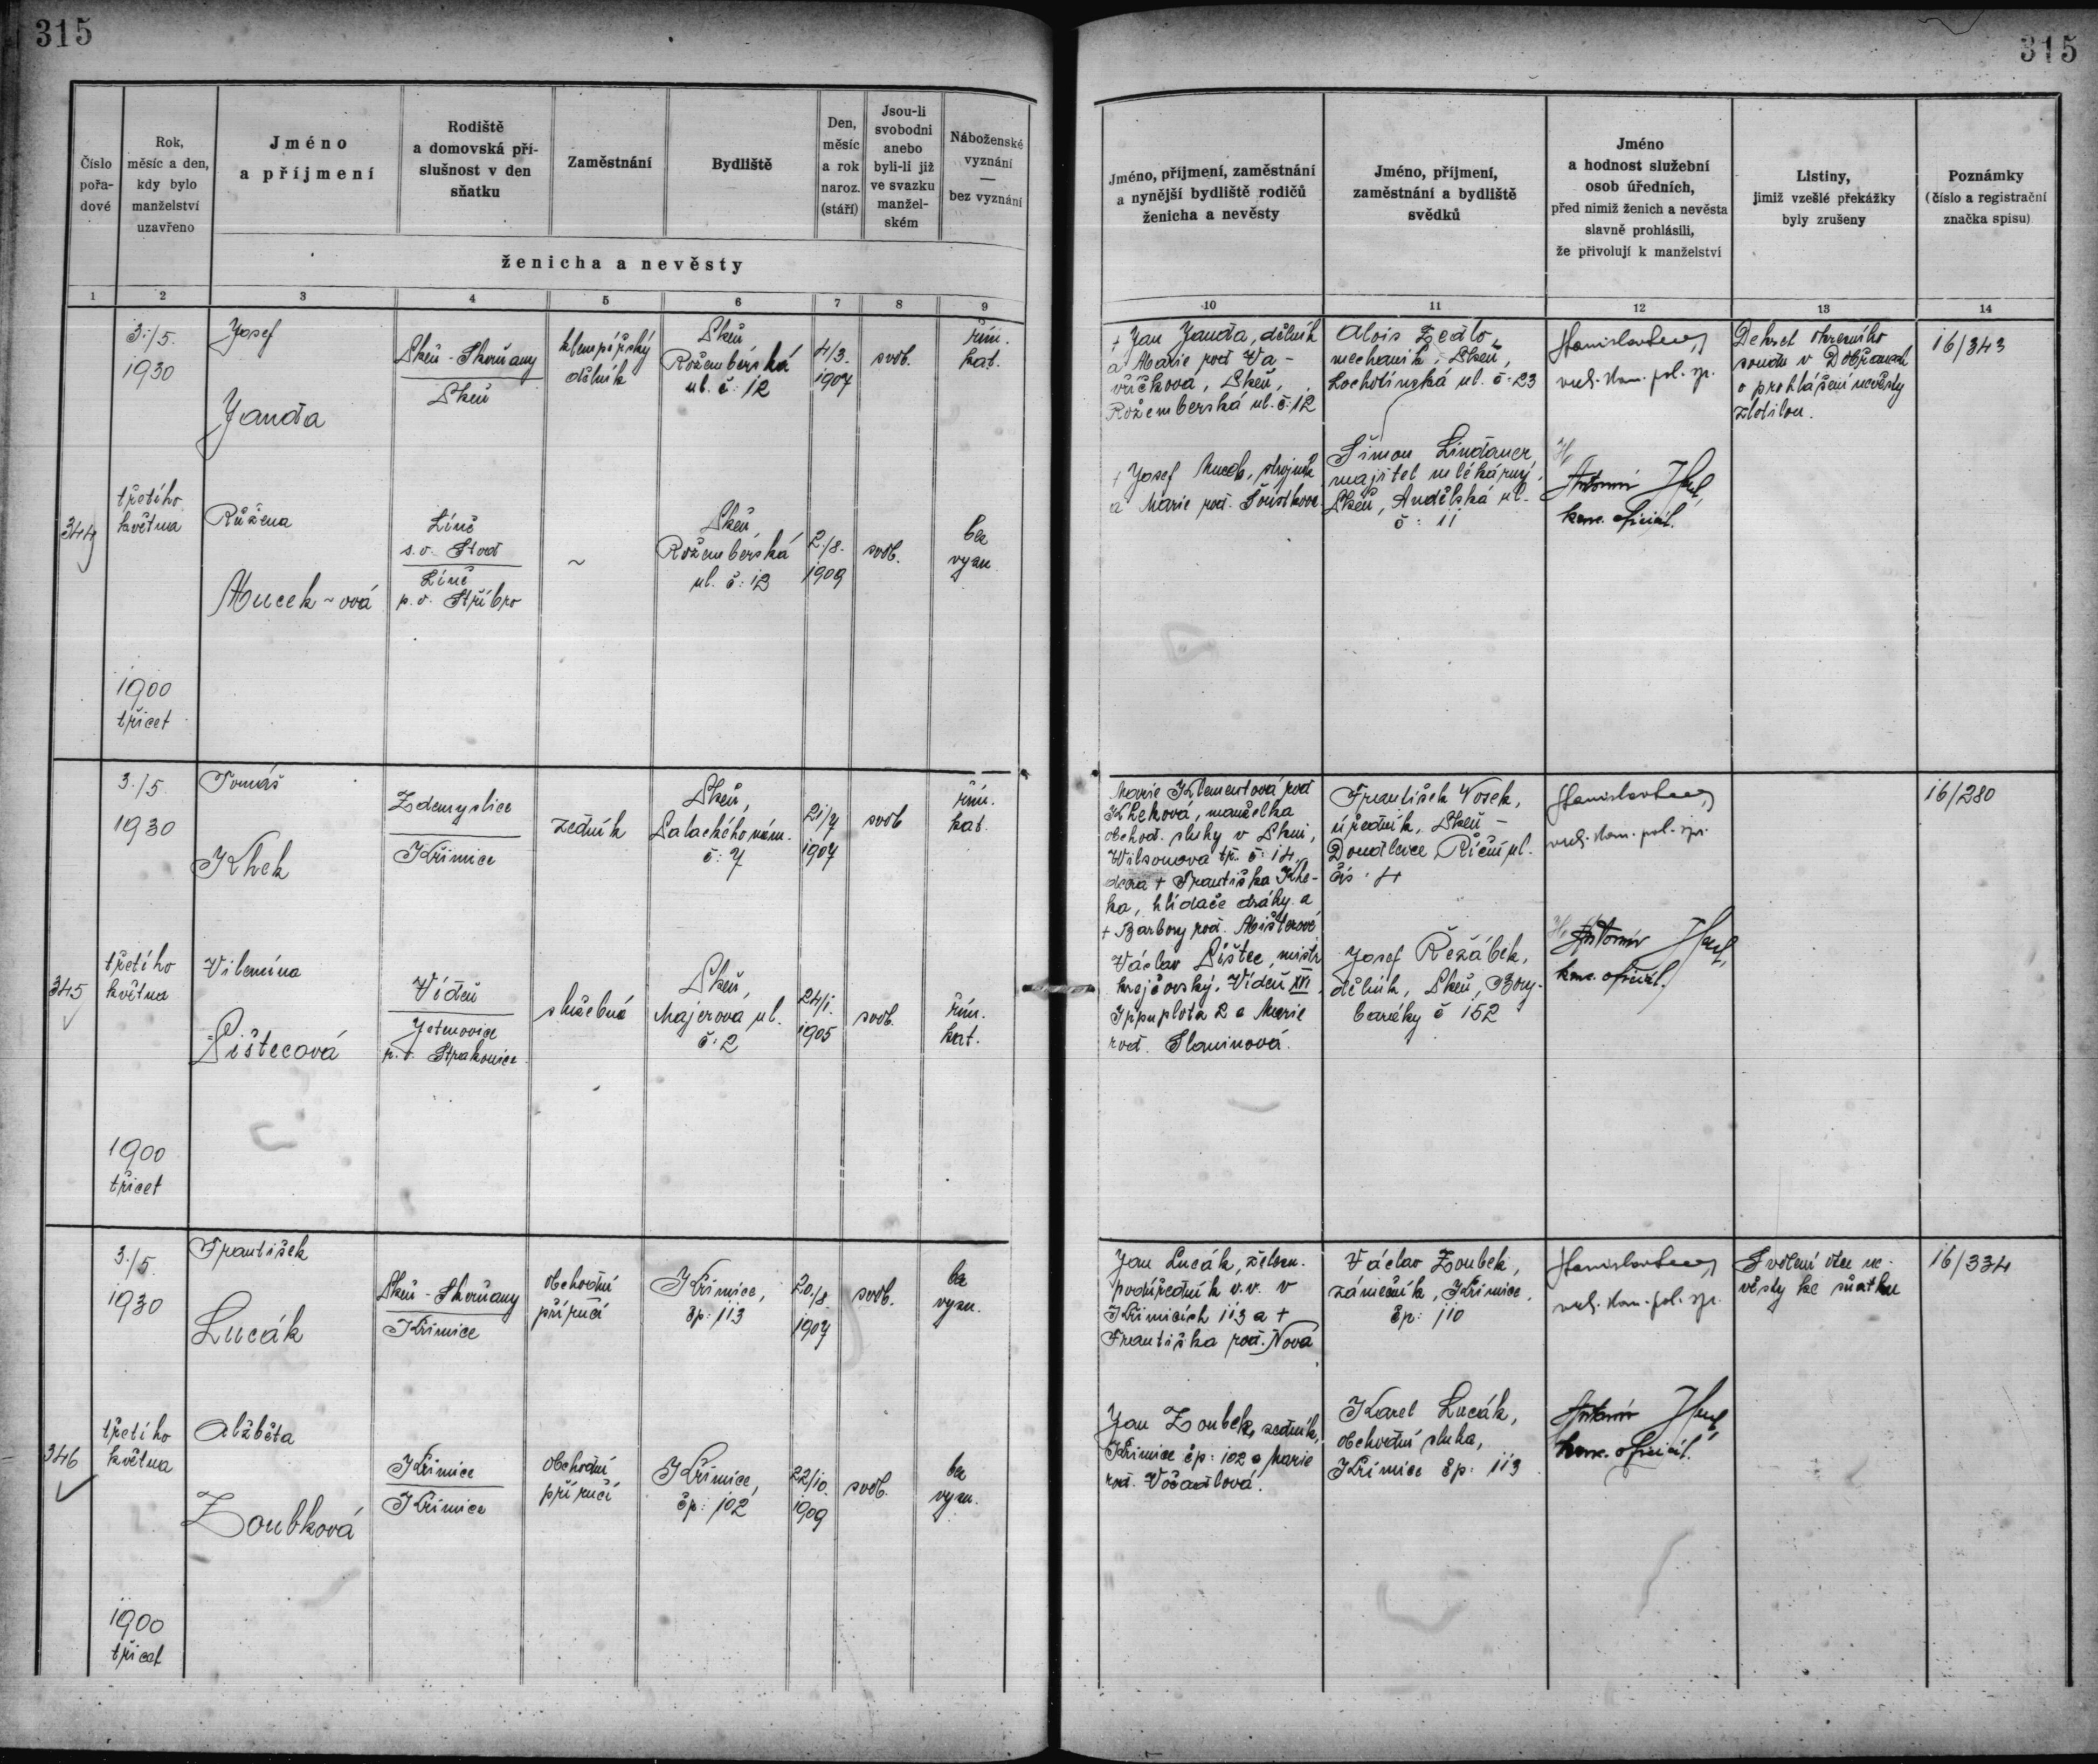 315
315
Číslo
pořa-
dové
Rok,
měsíc a den,
kdy bylo
manželství
uzavřeno
Jméno
a příjmení
Rodiště
a domovská pří-
slušnost v den
sňatku
Zaměstnání
Bydliště
Den,
měsíc
a rok
naroz.
(stáří)
Jsou-li
svobodni
anebo
byli-li již
ve svazku
manžel-
ském
Náboženské
vyznání
—
bez vyznání
ženicha a nevěsty
Jméno, příjmení, zaměstnání
a nynější bydliště rodičů
ženicha a nevěsty
Jméno, příjmení,
zaměstnání a bydliště
svědků
Jméno
a hodnost služební
osob úředních,
před nimiž ženich a nevěsta
slavně prohlásili,
že přivolují k manželství
Listiny,
jimiž vzešlé překážky
byly zrušeny
Poznámky
(číslo a registrační
značka spisu)
1 2 3 4 5 6 7 8 9
10 11 12 13 14
344
3./5.
1930
třetího
května
1900
třicet
Josef
Janda
Plzeň - Skvrňany
Plzeň
klempířský
dělník
Plzeň
Rožmberská
ul. č: 12
4/3.
1907
svob.
řím.
kat.
Růžena
Mucek ~ ová
Líně
s.o. Stod
Líně
p.o. Stříbro
~
Plzeň,
Rožemberská
ul. č: 12
2./8.
1909
svob.
bez
vyzn.
+ Jan Janda, dělník
a Marie rod. Va-
vříčkova, Plzeň,
Rožemberská ul. č: 12
+ Josef Mucek, strojník
a Marie rod. Šoustkova
Alois Zedlo,
mechanik, Plzeň,
Lochotínská ul. č. 23
Šimon Lindauer
majitel mlékárny,
Plzeň, Andělská ul.
č: 11
Antonín
kanc. oficiál.
Dekret okresního
soudu v Dobřanech
o prohlášení nevěsty
zletilou.
16/343
345
3./5.
1930
třetího
května
1900
třicet
Tomáš
Khek
Zdemyslice
Křimice
zedník
Plzeň,
Palackého nám.
č: 7
21/7
1907
svob
řím.
kat.
Vilemína
Pištecová
Vídeň
Jetenovice
p.o. Strakonice
služebná
Plzeň,
Majerova ul.
č: 2
24/1.
1905
svob.
řím.
kat.
Marie Klementová rod
Kheková, manželka
obchod. sluhy v Plzni,
Wilsonova tř. č: 14,
dcera + Františka Khe-
ka, hlídače dráhy a
+ Barbory rod. Mišterové
Václav Pištec, mistr
krejčovský, Vídeň XVI
2 a Marie
rod. Slaninová.
František Vosek,
úředník, Plzeň -
Doudlevce, Říční ul.
čís: 4
Josef Řežábek,
dělník, Plzeň, Bory-
baráky č 152
Antonín
kanc. oficiál.
16/280
346
3./5.
1930
třetího
května
1900
třicet
František
Lucák
Plzeň - Skvrňany
Křimice
obchodní
příručí
Křimice,
čp: 113
20./8.
1907
svob.
bez
vyzn.
Alžběta
Zoubková
Křimice
Křimice
obchodní
příručí
Křimice,
čp: 102
22/10.
1909
svob.
bez
vyzn.
Jan Lucák, železn.
podúředník v.v. v
Křimicích 113 a +
Františka rod. Nová
Jan Zoubek, zedník,
Křimice čp: 102 a Marie
rod. Vočadlová.
Václav Zoubek,
zámečník, Křimice,
čp: 110
Karel Lucák,
obchodní sluha,
Křimice čp: 113
Antonín
kanc. oficiál.
Svolení otce ne-
věsty ke sňatku
16/334